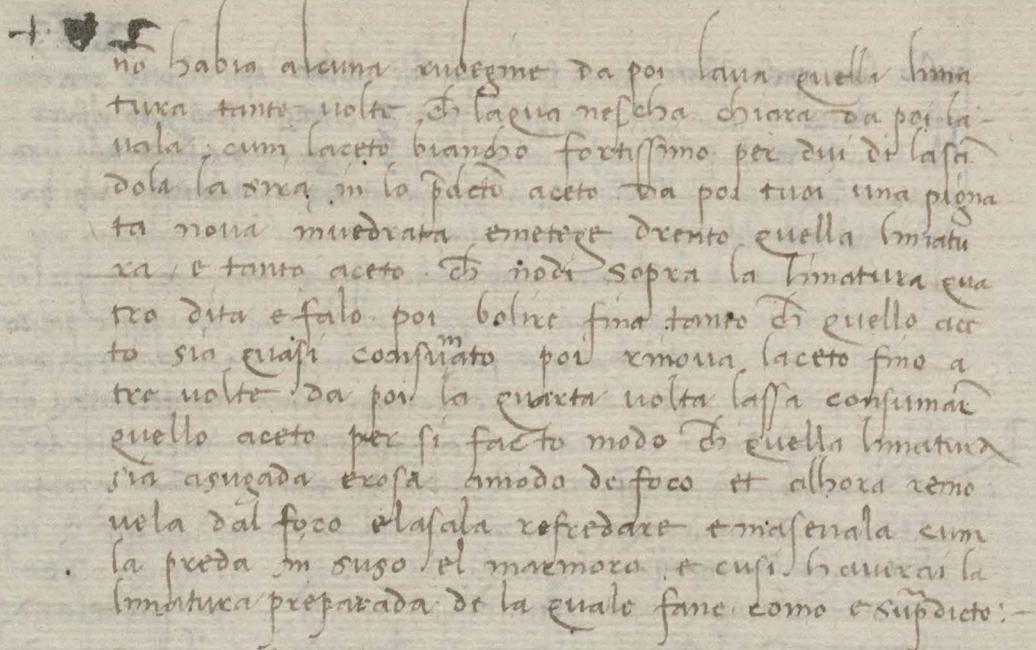 nō habia alcuna rubegine da poi lava quella lima
tura tante volte ch̄ laqua nescha chiara da poi la-
vala cum laceto biancho fortissimo per dui di lasā
dola la sira in lo p̄dcto aceto da poi tuoi una pigna
ta nova invedrata emetege drento quella limatu
ra e tanto aceto ch̄ nodi sopra la limatura qua
tro dita e falo poi bolire fina tanto ch̄ quello ace
to sia quasi consumato poi rinova laceto fino a
tre volte da poi la quarta volta lassa consumar̄
quello aceto per si facto modo ch̄ quella limatura
sia asugada erosa amodo de foco et alhora remo
vela dal foco elasala refredare e masenala cum
la preda in suso el marmoro e cusi haverai la
limatura preparada de la quale fane como e sup̄dicto:-